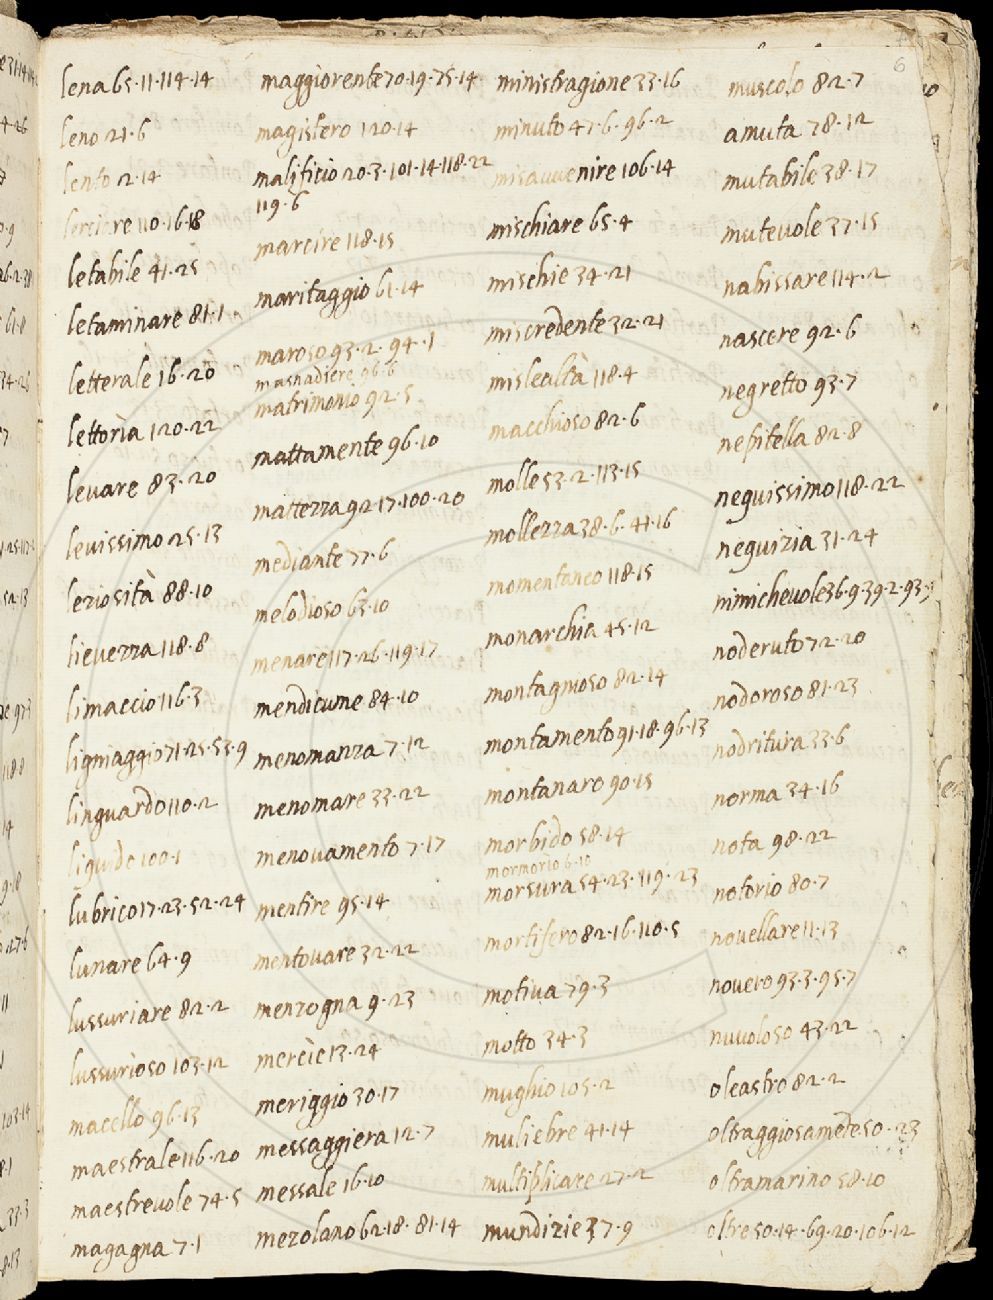 6
lena 65·11·114·14
leno 21·6
lento 2·14
lerciere 110·16·18
letabile 41·25
letaminare 81·1
letterale 16·20
lettorìa 120·22
levare 83·20
levissimo 25·13
leziosità 88·10
lievezza 118·8
limaccio 116·3
ligniaggio 71·25·53·9
linguardo 110·2
liquido 100·1
lubrico 17·23·52·24
lunare 64·9
lussuriare 82·2
lussurioso 103·12
macello 96·13
maestrale 116·20
maestrevole 74·5
magagna 7·1
maggiorente 70·19·75·14
magistero 120·14
malificio 20·3·101·14·118·22
119·6
marcire 118·15
maritaggio 61·14
maroso 93·2·94·1
masnadiere 96·6
matrimonio 92·5
mattamente 96·10
mattezza 92·17·100·20
mediante 77·6
melodioso 63·10
menare 117·26·119·17
mendicume 84·10
menomanza 7·12
menomare 33·22
menovamento 7·17
mentire 95·14
mentovare 32·22
menzogna 9·23
mercìe 13·24
meriggio 30·17
messaggiera 12·7
messale 16·10
mezolano 62·18·81·14
ministragione 33·16
minuto 47·6·96·2
misavvenire 106·14
mischiare 65·4
mischie 34·21
miscredente 32·21
mislealtà 118·4
macchioso 82·6
molle 53·2·113·15
mollezza 38·6·41·16
momentaneo 118·15
monarchia 45·12
montagnoso 82·14
montamento 91·18·96·13
montanaro 90·15
morbido 58·14
mormorio 6·10
morsura 54·23·119·23
mortifero 82·16·110·5
motiva 79·3
motto 34·3
mughio 105·2
muliebre 41·14
multiplicare 27·2
mundizie 37·9
muscolo 82·7
amuta 78·12
mutabile 38·17
mutevole 37·15
nabissare 114·2
nascere 92·6
negretto 93·7
nepitella 82·8
nequissimo 118·22
nequizia 31·24
nimichevole 36·9·39·2·93·
noderuto 72·20
nodoroso 81·23
nodritura 33·6
norma 34·16
nota 98·22
notorio 80·7
novellare 11·13
novero 93·3·95·7
nuvoloso 43·22
oleastro 82·2
oltraggiosamēte 50·23
oltramarino 58·10
oltre 50·14·69·20·106·12